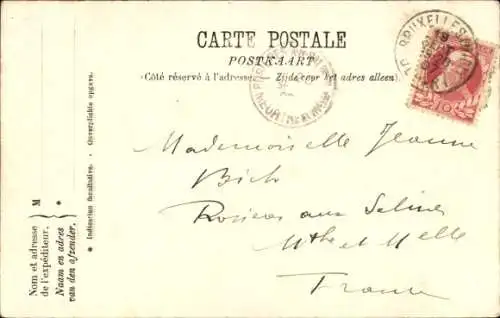 CARTE POSTALE
POSTKAART
(Côté réservé à l'adresse. — Zijde voor het adres alleen)
BRUXELLES
10
Mademoiselle Jeanne
Bich
Rosieres aux Salines
Mthe et Mlle
France
M
Nom et adresse
de l'expéditeur.
Naam en adres
van den afzender.
* Indication facultative. - Onverplichte opgave.